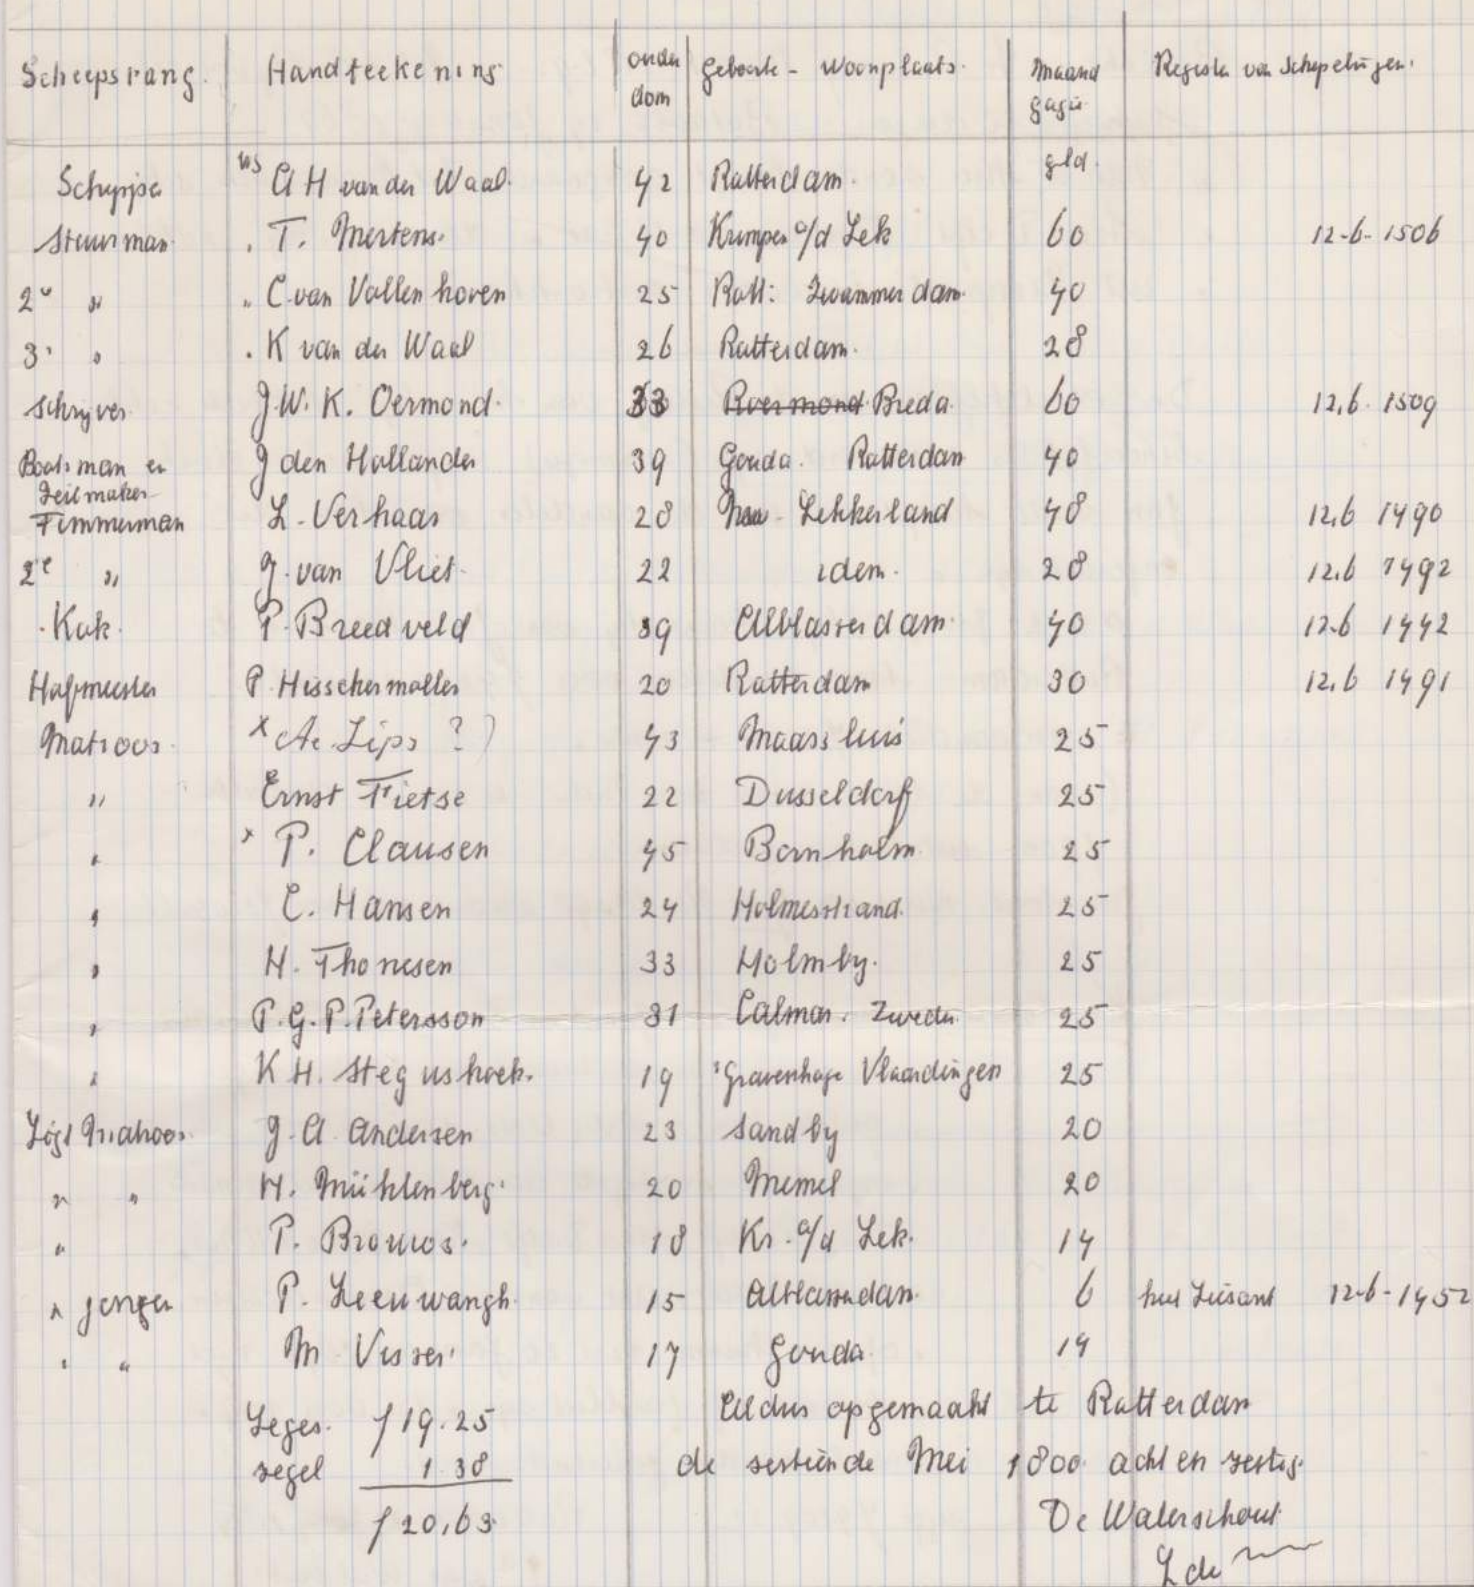 Scheepsrang. Handteekening ouder dom geboorte - woonplaats. maand gagie Register van Schepelingen.
gld.
Schipper ws A H van der Waal. 42 Rotterdam.
Stuurman . T. Mertens. 40 Krimpen a/d Lek 60 12-6-1506
2e " " C. van Vollenhoven 25 Rott: Zwammerdam 40
3e " . K van der Waal 26 Rotterdam. 28
Schryver J.W. K. Oermond. 33 Roermond Breda. 60 12.6. 1509
Bootsman en Zeilmaker J den Hollander 39 Gouda. Rotterdam 40
Timmerman L. Verhaas 28 Nieuw - Lekkerland 48 12.6 1490
2e " J. van Vliet. 22 idem. 28 12.6 1492
. Kok. P. Breedveld 39 Alblasserdam. 40 12.6 1442
Hofmeester P. Hisschemoller 20 Rotterdam 30 12.6 1491
Matroos. x Ae Lips ?) 43 Maassluis 25
" Ernst Fietse 22 Dusseldorf 25
" x P. Clausen 45 Bornholm. 25
" C. Hansen 24 Holmesstrand. 25
" H. Thonesen 33 Holmby. 25
" P.G.P. Petersson 31 Calmar. Zweden. 25
" K H. Stegushoek. 19 's Gravenhage Vlaardingen 25
Ligt Matroos. J. A. Andersen 23 Sandby 20
" " H. Mühlenberg. 20 Memel 20
" P. Brouwos. 18 Kr. a/d Lek. 14
" jongen P. Leeuwangh. 15 Alblasserdam. 6 12-6-1452
" " M Visser. 17 Gouda. 14
Leges. f 19.25
zegel 1.38
f 20,63
Aldus opgemaakt te Rotterdam
de sestiende Mei 1800 acht en zestig.
De Waterschout
L de